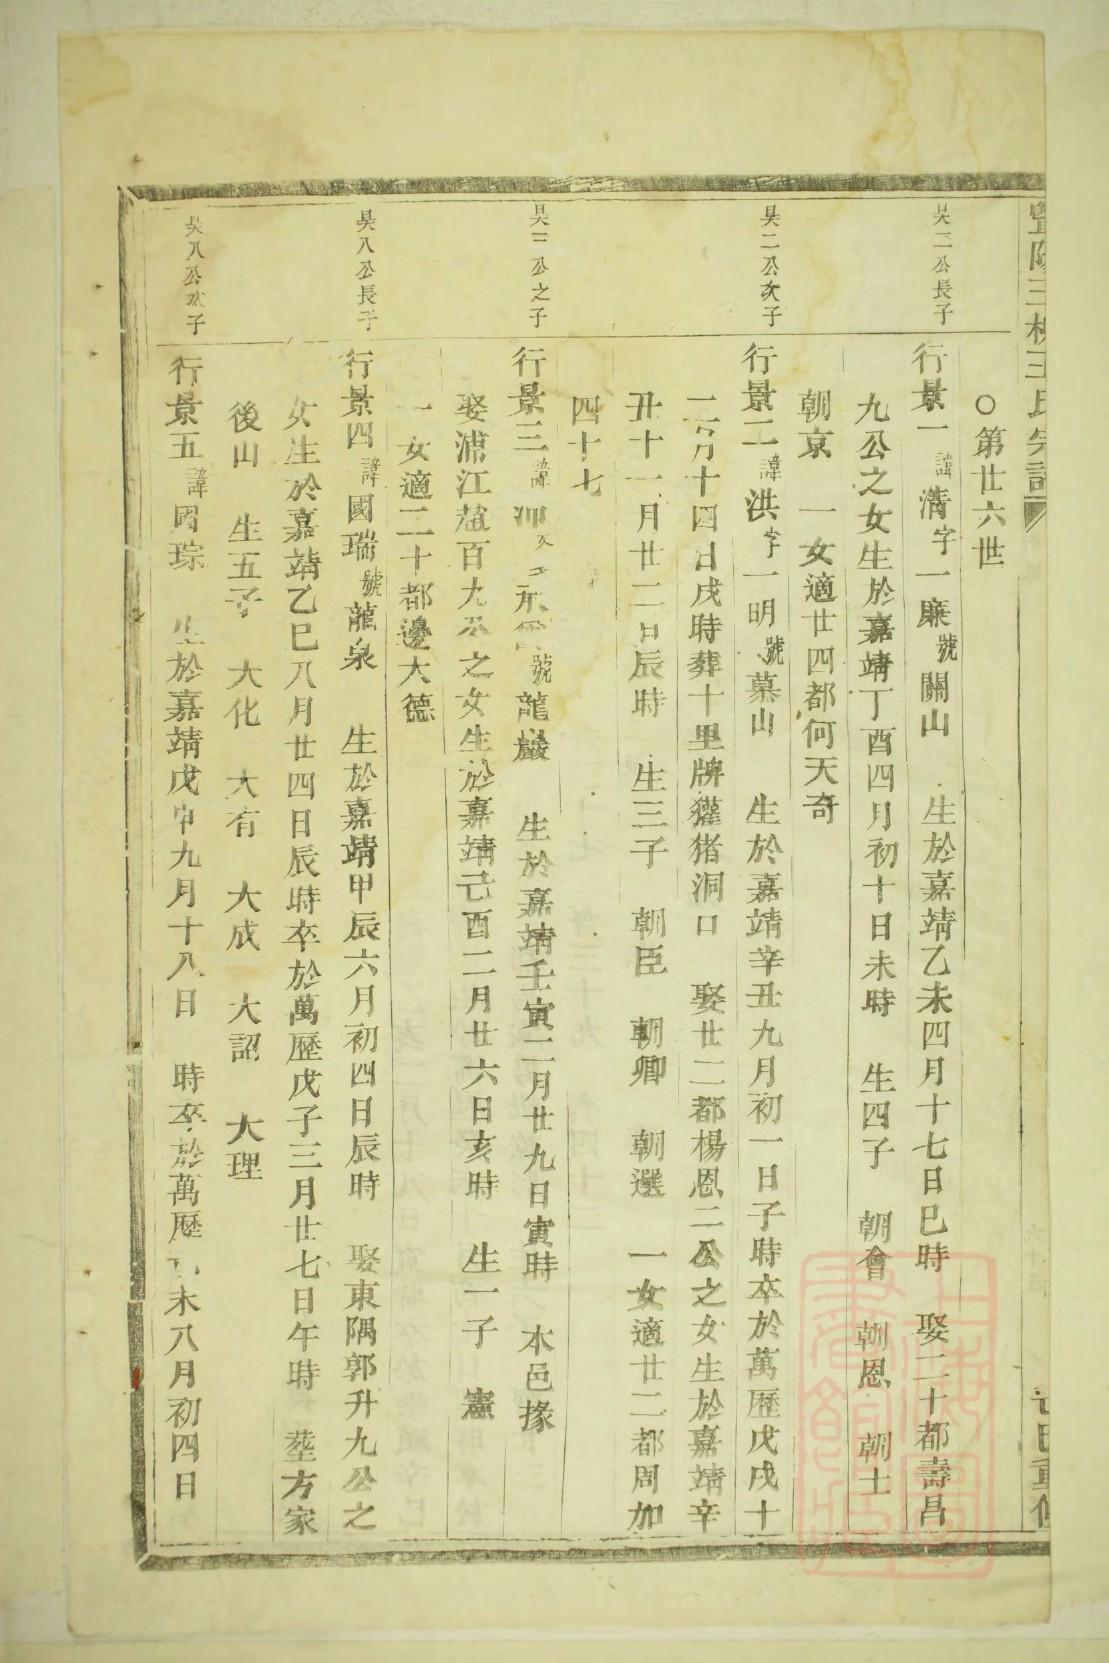 暨陽三槐王氏宗譜
○第廿六世
昊二公長子
行景一諱清字一廉號關山　生於嘉靖乙未四月十七日巳時　娶二十都壽昌
九公之女生於嘉靖丁酉四月初十日未時　生四子　朝會　朝恩　朝士
朝京　一女適廿四都何天奇
昊二公次子
行景二諱洪字一明號慕山　生於嘉靖辛丑九月初一日子時卒於萬歷戊戌十
二月十四日戌時葬十里牌獾猪洞口　娶廿二都楊恩二公之女生於嘉靖辛
丑十一月廿二日辰時　生三子　朝臣　朝卿　朝選　一女適廿二都周加
四十七
昊三公之子
行景三諱　號龍巖　生於嘉靖壬寅二月廿九日寅時　本邑掾
娶浦江趙百九公之女生於嘉靖己酉二月廿六日亥時　生一子　憲
一女適二十都邊大德
昊八公長子
行景四諱國瑞號龍泉　生於嘉靖甲辰六月初四日辰時　娶東隅郭升九公之
女生於嘉靖乙巳八月廿四日辰時卒於萬歷戊子三月廿七日午時　塟方家
後山　生五子　大化　大有　大成　大詔　大理
昊八公次子
行景五諱國琮　生於嘉靖戊申九月十八日　時卒於萬歷　未八月初四日